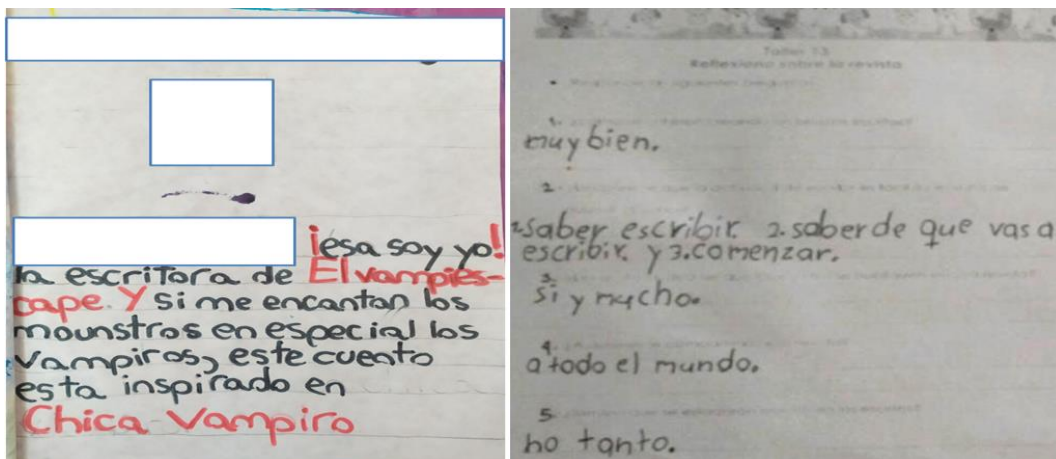 ¡esa soy yo!
la escritora de El vampies-
cape. Y si me encantan los
mounstros en especial los
vampiros, este cuento
esta inspirado en
Chica Vampiro
Taller 13
Reflexiono sobre la revista
1.
muy bien.
2.
1.saber escribir. 2. saber de que vas a
escribir. y 3.comenzar.
3.
si y mucho.
4.
a todo el mundo.
5.
no tanto.